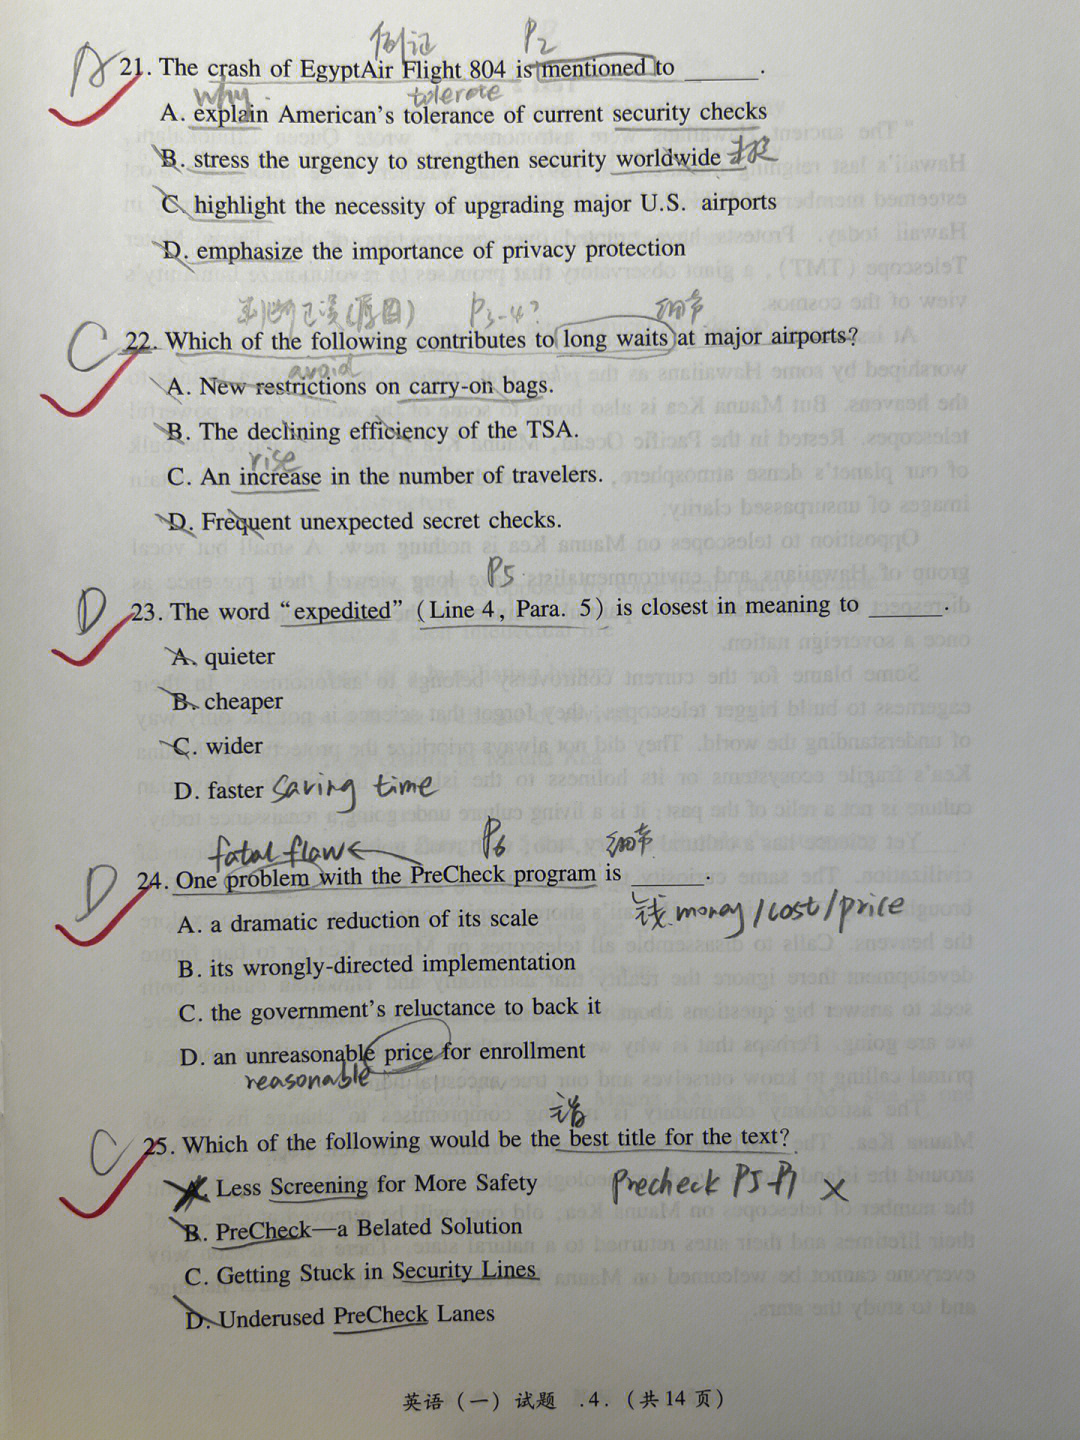 例证 P2
A 21. The crash of EgyptAir Flight 804 is mentioned to ______.
why tolerate
A. explain American's tolerance of current security checks
B. stress the urgency to strengthen security worldwide
C. highlight the necessity of upgrading major U.S. airports
D. emphasize the importance of privacy protection
P3-4? 细节
C 22. Which of the following contributes to long waits at major airports?
avoid
A. New restrictions on carry-on bags.
B. The declining efficiency of the TSA.
rise
C. An increase in the number of travelers.
D. Frequent unexpected secret checks.
P5
D 23. The word “expedited” (Line 4, Para. 5) is closest in meaning to ______.
A. quieter
B. cheaper
C. wider
D. faster saving time
fatal flaw P6 细节
D 24. One problem with the PreCheck program is ______.
钱 money/cost/price
A. a dramatic reduction of its scale
B. its wrongly-directed implementation
C. the government's reluctance to back it
D. an unreasonable price for enrollment
reasonable
C 25. Which of the following would be the best title for the text?
A. Less Screening for More Safety Precheck P5 P1 ×
B. PreCheck—a Belated Solution
C. Getting Stuck in Security Lines
D. Underused PreCheck Lanes
英语（一）试题 .4.（共14页）